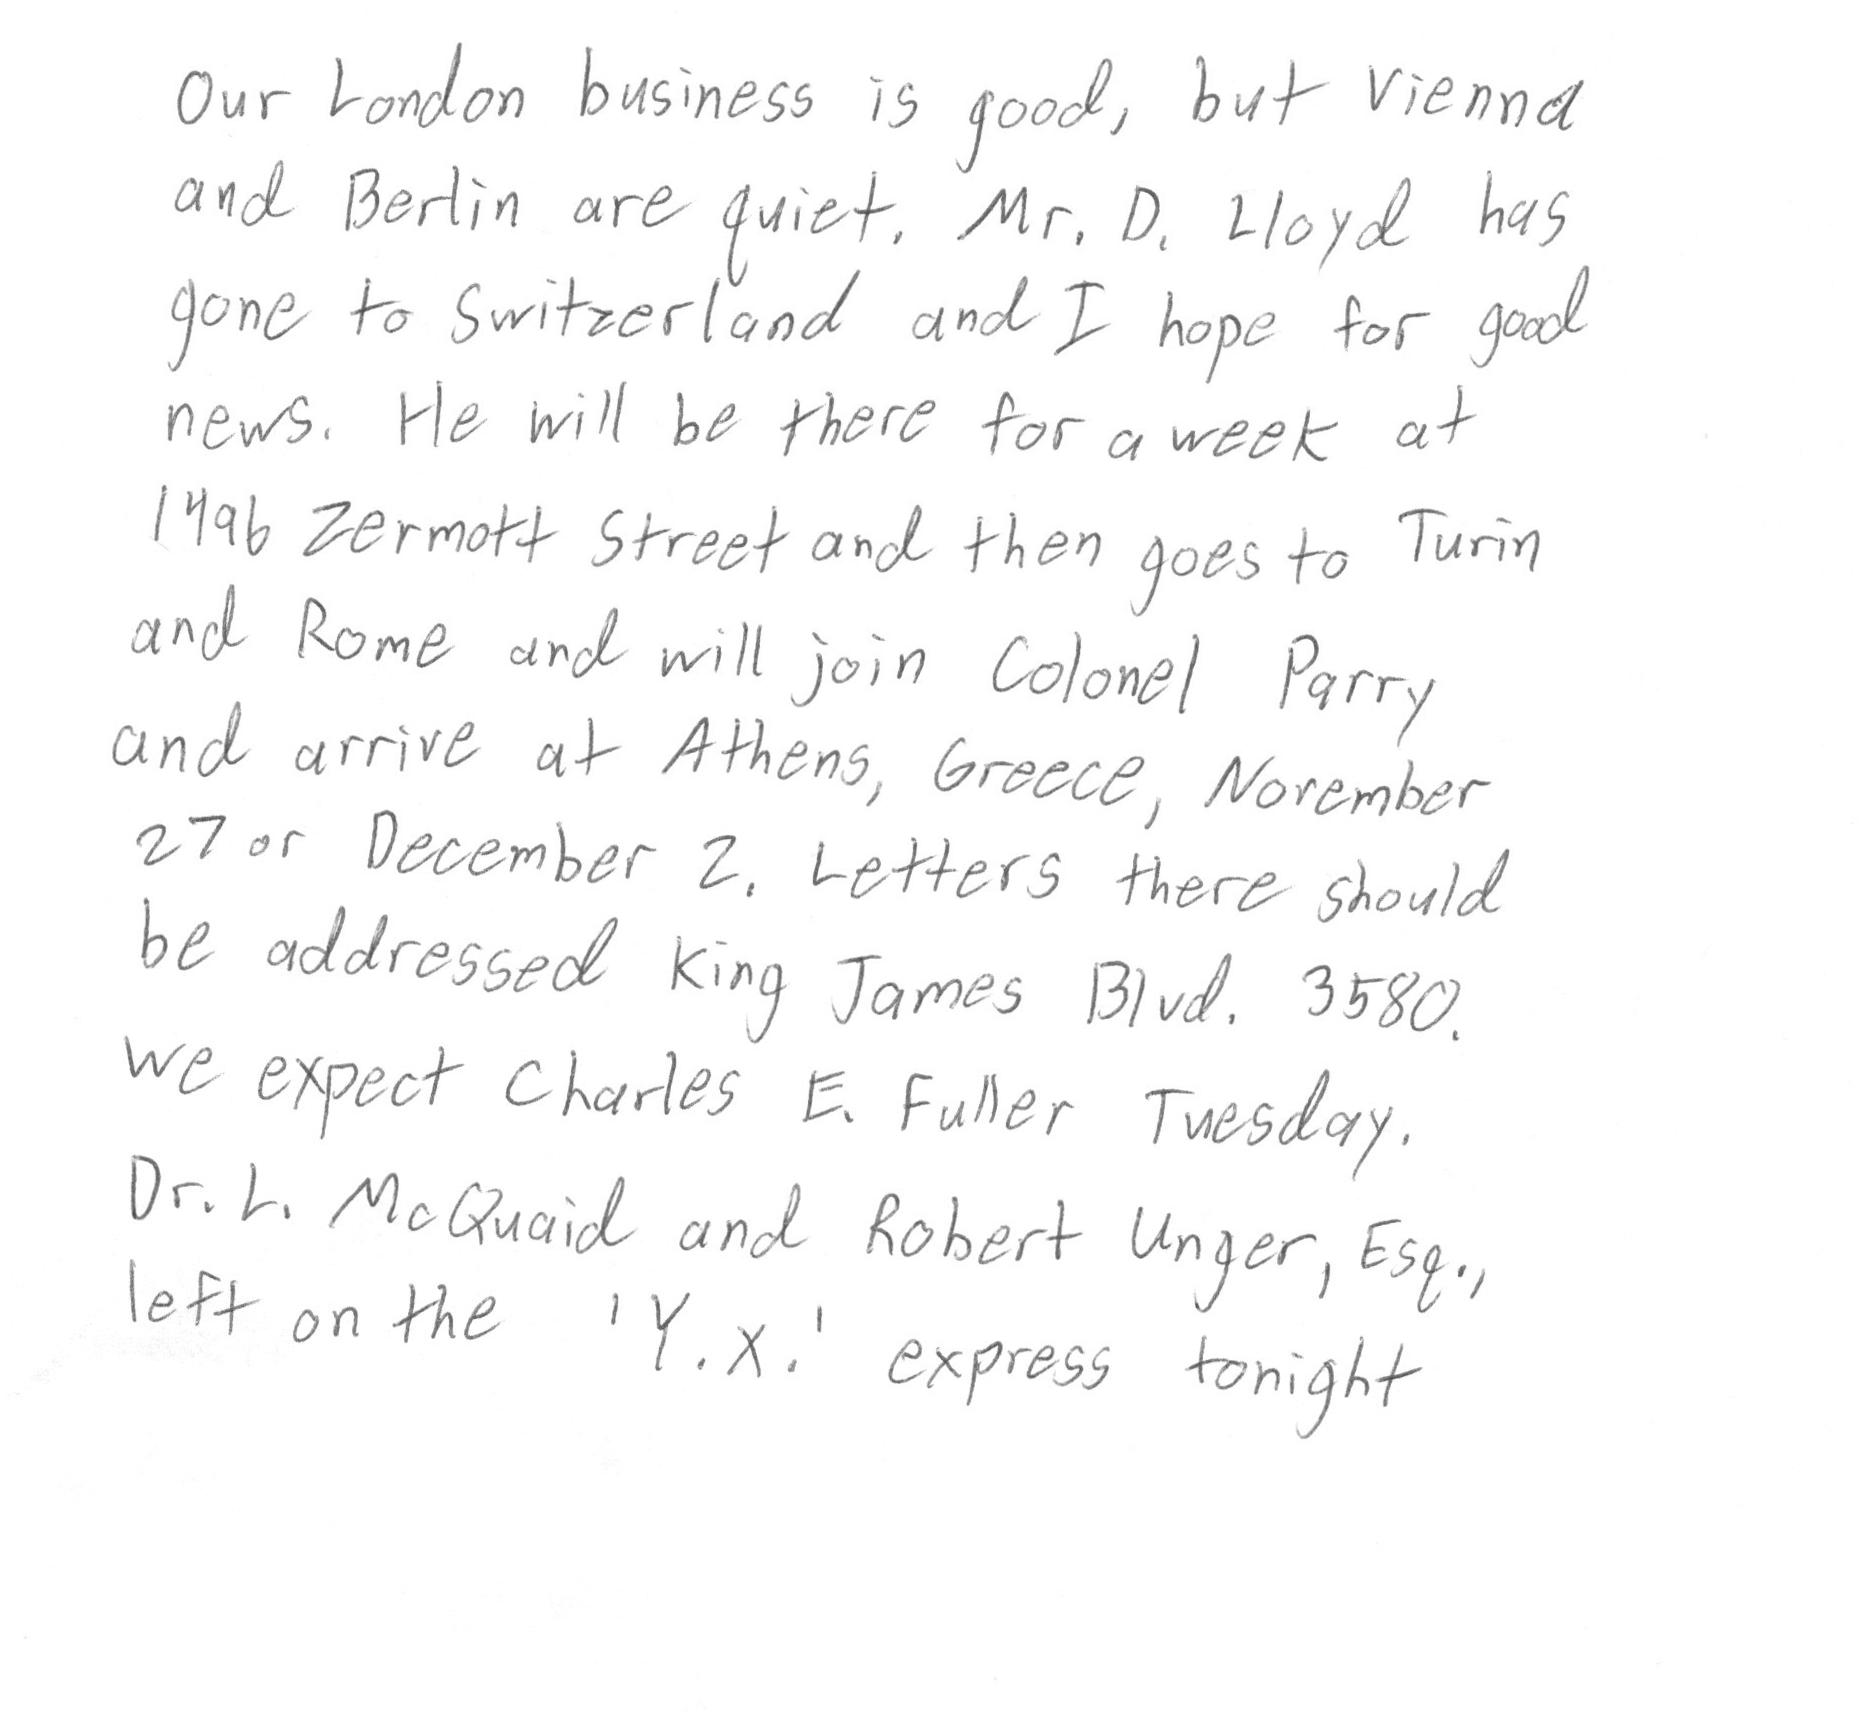 Our London business is good, but Vienna
and Berlin are quiet. Mr. D. Lloyd has
gone to Switzerland and I hope for good
news. He will be there for a week at
1496 Zermott Street and then goes to Turin
and Rome and will join Colonel Parry
and arrive at Athens, Greece, November
27 or December 2. Letters there should
be addressed King James Blvd. 3580.
We expect Charles E. Fuller Tuesday.
Dr. L. McQuaid and Robert Unger, Esq.,
left on the 'Y.X.' express tonight